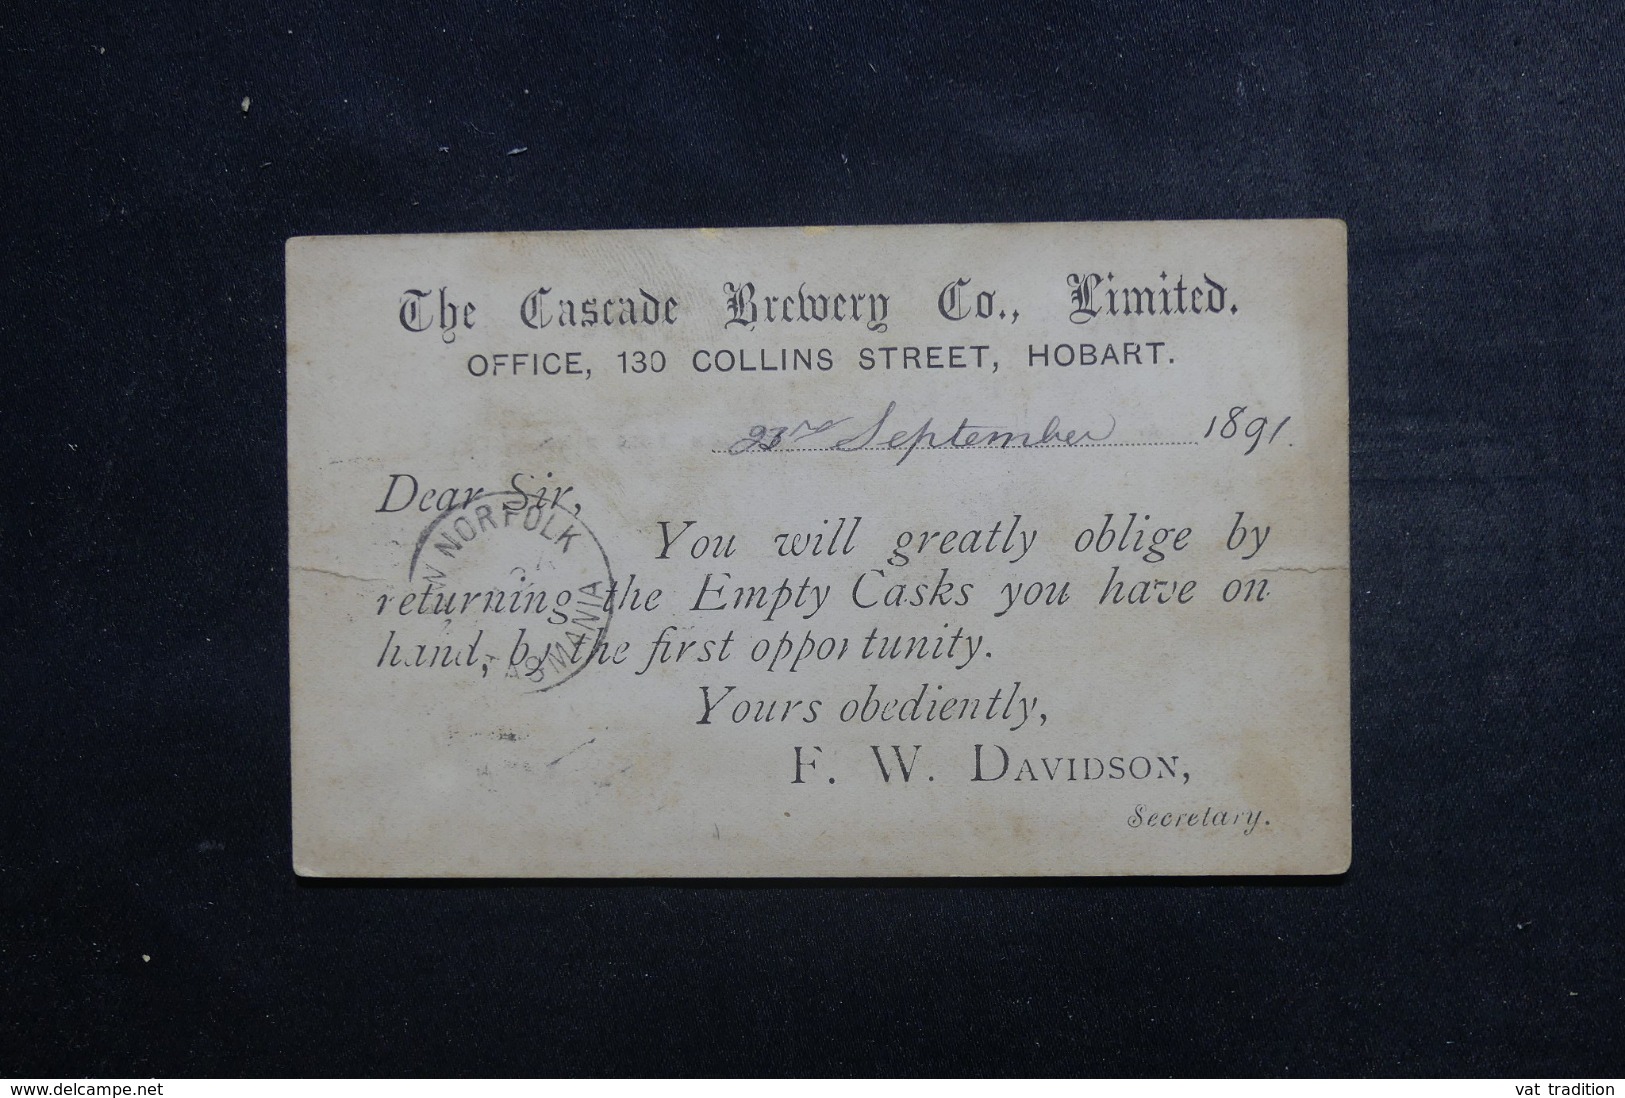 The Cascade Brewery Co., Limited.
OFFICE, 130 COLLINS STREET, HOBART.
23rd September 1891.
Dear Sir,
You will greatly oblige by
returning the Empty Casks you have on
hand, by the first opportunity.
Yours obediently,
F. W. DAVIDSON,
Secretary.
W NORFOLK
TASMANIA
www.delcampe.net
vat_tradition